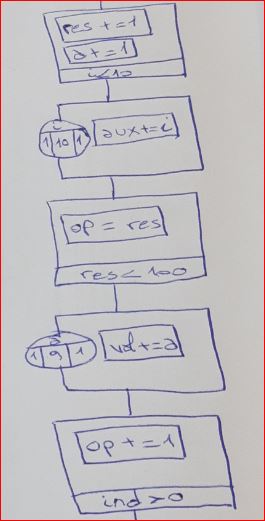 res += 1
a += 1
i < 10
i
1 10 1
aux += i
op = res
res < 100
a
1 9 1
vol += a
op += 1
ind > 0